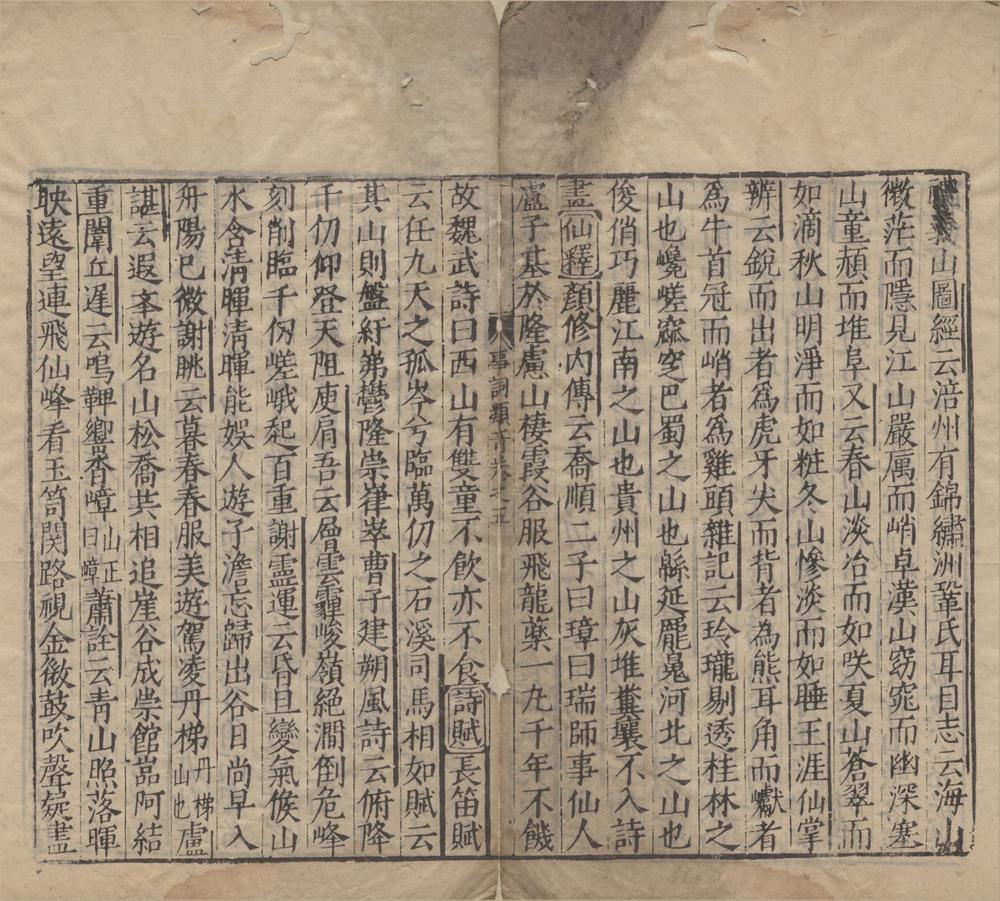 山圖經云涪州有錦繡洲鞏氏耳目志云海山
微茫而隱見江山嚴厲而峭卓漢山窈窕而幽深塞
山童赬而堆阜又云春山淡冶而如咲夏山蒼翠而
如滴秋山明淨而如粧冬山慘淡而如睡王涯仙掌
辨云銳而出者為虎牙尖而背者為熊耳角而巘者
為牛首冠而峭者為雞頭雜記云玲瓏剔透桂林之
山也巉嵯窳窆巴蜀之山也緜延龎㠥河北之山也
俊俏巧麗江南之山也貴州之山灰堆糞壤不入詩
畫仙釋顏修內傳云喬順二子曰璋曰瑞師事仙人
盧子基於隆慮山棲霞谷服飛龍藥一丸千年不饑
事詞類奇卷之五
故魏武詩曰西山有雙童不飲亦不食詩賦長笛賦
云任九天之孤岑兮臨萬仞之石溪司馬相如賦云
其山則盤紆岪鬱隆崇嵂崒曹子建朔風詩云俯降
千仞仰登天阻庾肩吾云層雲霾峻嶺絕澗倒危峰
刻削臨千仞嵯峨起百重謝靈運云昏旦變氣候山
水含清暉清暉能娛人遊子澹忘歸出谷日尚早入
舟陽已微謝朓云暮春春服美遊駕凌丹梯丹梯山也盧
諶云遐峯遊名山松喬共相追崖谷成崇館嵓阿結
重闈丘遲云鳴鞞響香嶂山正曰嶂蕭詮云青山照落暉
映遠望連飛仙峰看玉笥関路視金徽鼓吹聲疑盡